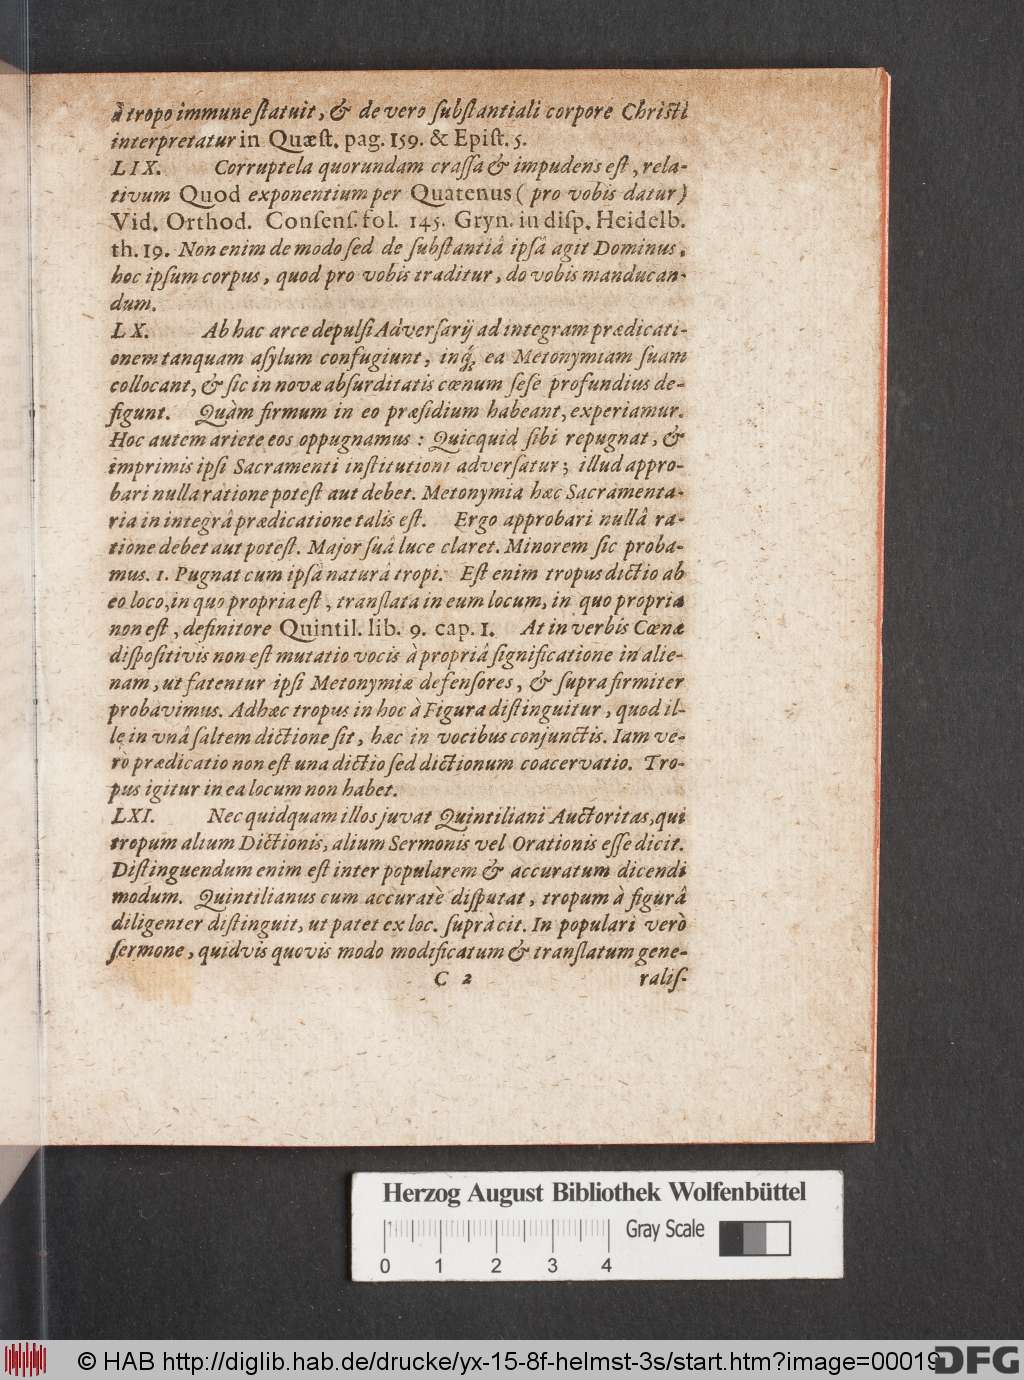 à tropo immune ſtatuit, & de vero ſubſtantiali corpore Chriſti
interpretatur in Quæſt. pag. 159. & Epiſt. 5.
LIX. Corruptela quorundam craſſa & impudens eſt, rela-
tivum Quod exponentium per Quatenus (pro vobis datur)
Vid. Orthod. Conſenſ. fol. 145. Gryn. in diſp. Heidelb.
th. 19. Non enim de modo ſed de ſubſtantiâ ipſâ agit Dominus.
hoc ipſum corpus, quod pro vobis traditur, do vobis manducan-
dum.
LX. Ab hac arce depulſi Adverſarij ad integram prædicati-
onem tanquam aſylum confugiunt, inq́; ea Metonymiam ſuam
collocant, & ſic in novæ abſurditatis cœnum ſeſe profundius de-
figunt. Quàm firmum in eo præſidium habeant, experiamur.
Hoc autem ariete eos oppugnamus: Quicquid ſibi repugnat, &
imprimis ipſi Sacramenti inſtitutioni adverſatur; illud appro-
bari nulla ratione poteſt aut debet. Metonymia hæc Sacramenta-
ria in integrâ prædicatione talis eſt. Ergo approbari nullâ ra-
tione debet aut poteſt. Major ſuâ luce claret. Minorem ſic proba-
mus. 1. Pugnat cum ipſâ naturâ tropi. Eſt enim tropus dictio ab
eo loco, in quo propria eſt, tranſlata in eum locum, in quo propria
non eſt, definitore Quintil. lib. 9. cap. 1. At in verbis Cœnæ
diſpoſitivis non eſt mutatio vocis à propriâ ſignificatione in alie-
nam, ut fatentur ipſi Metonymiæ defenſores, & ſupra firmiter
probavimus. Adhæc tropus in hoc à Figura diſtinguitur, quod il-
le in unâ ſaltem dictione ſit, hæc in vocibus conjunctis. Iam ve-
rò prædicatio non eſt una dictio ſed dictionum coacervatio. Tro-
pus igitur in ea locum non habet.
LXI. Nec quidquam illos juvat Quintiliani Auctoritas, qui
tropum alium Dictionis, alium Sermonis vel Orationis eſſe dicit.
Diſtinguendum enim eſt inter popularem & accuratum dicendi
modum. Quintilianus cum accuratè diſputat, tropum à figurâ
diligenter diſtinguit, ut patet ex loc. ſuprà cit. In populari verò
ſermone, quidvis quovis modo modificatum & tranſlatum gene-
C 2 raliſ-
Herzog August Bibliothek Wolfenbüttel
Gray Scale
0 1 2 3 4
© HAB http://diglib.hab.de/drucke/yx-15-8f-helmst-3s/start.htm?image=00019
DFG